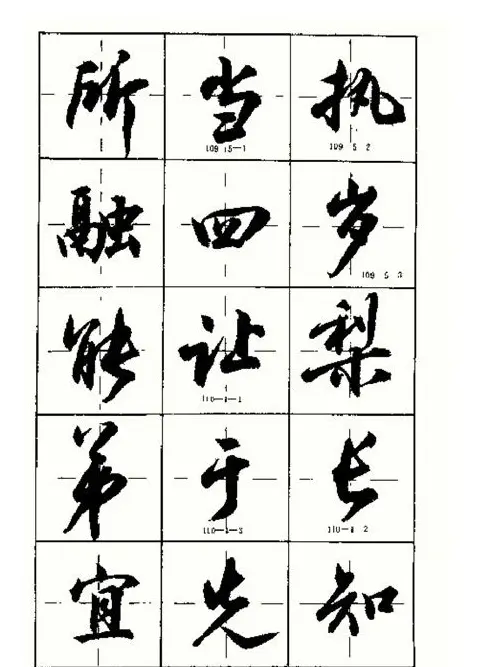 所当执
109 5-1 109 5 2
融四岁
109 5 3
能让梨
110-1-1
弟于长
110-1-3 110-1 2
宜先知